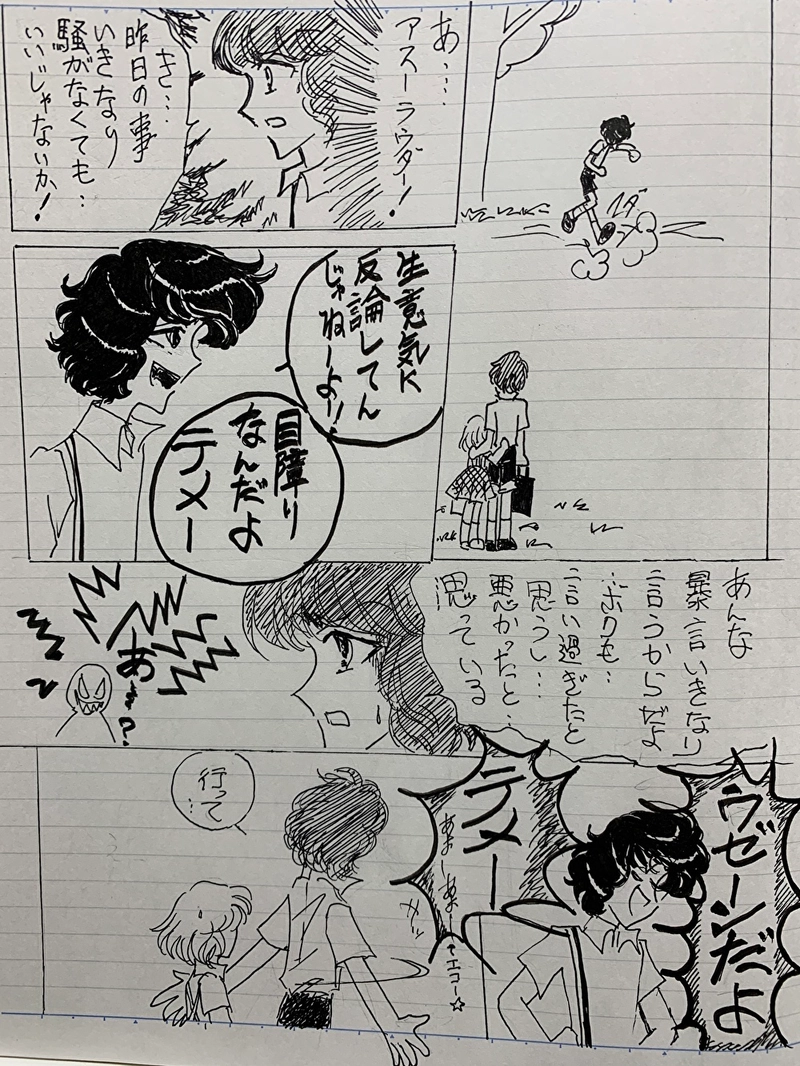 ダ
あ…
アスーラウダー！
き…
昨日の事
いきなり
騒がなくても…
いいじゃないか！
生意気に
反論してん
じゃねーよー！
目障り
なんだよ
テメー
あんな
暴言いきなり
言うからだよ
…ボクも…
言い過ぎたと
思うし…
悪かったと…
思っている
あぁ？
ウゼーンだよ
テメー
エコー☆
行って…